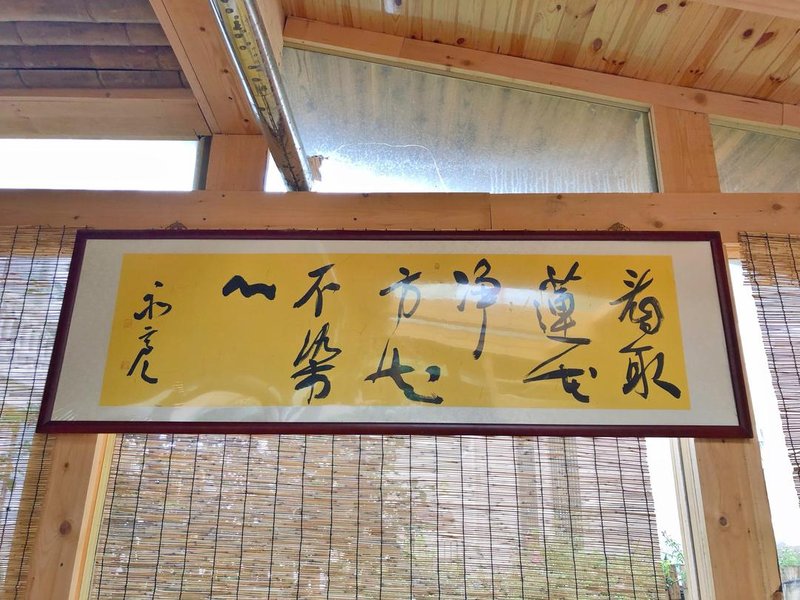 看取
蓮花
净
方知
不染
心
永亮